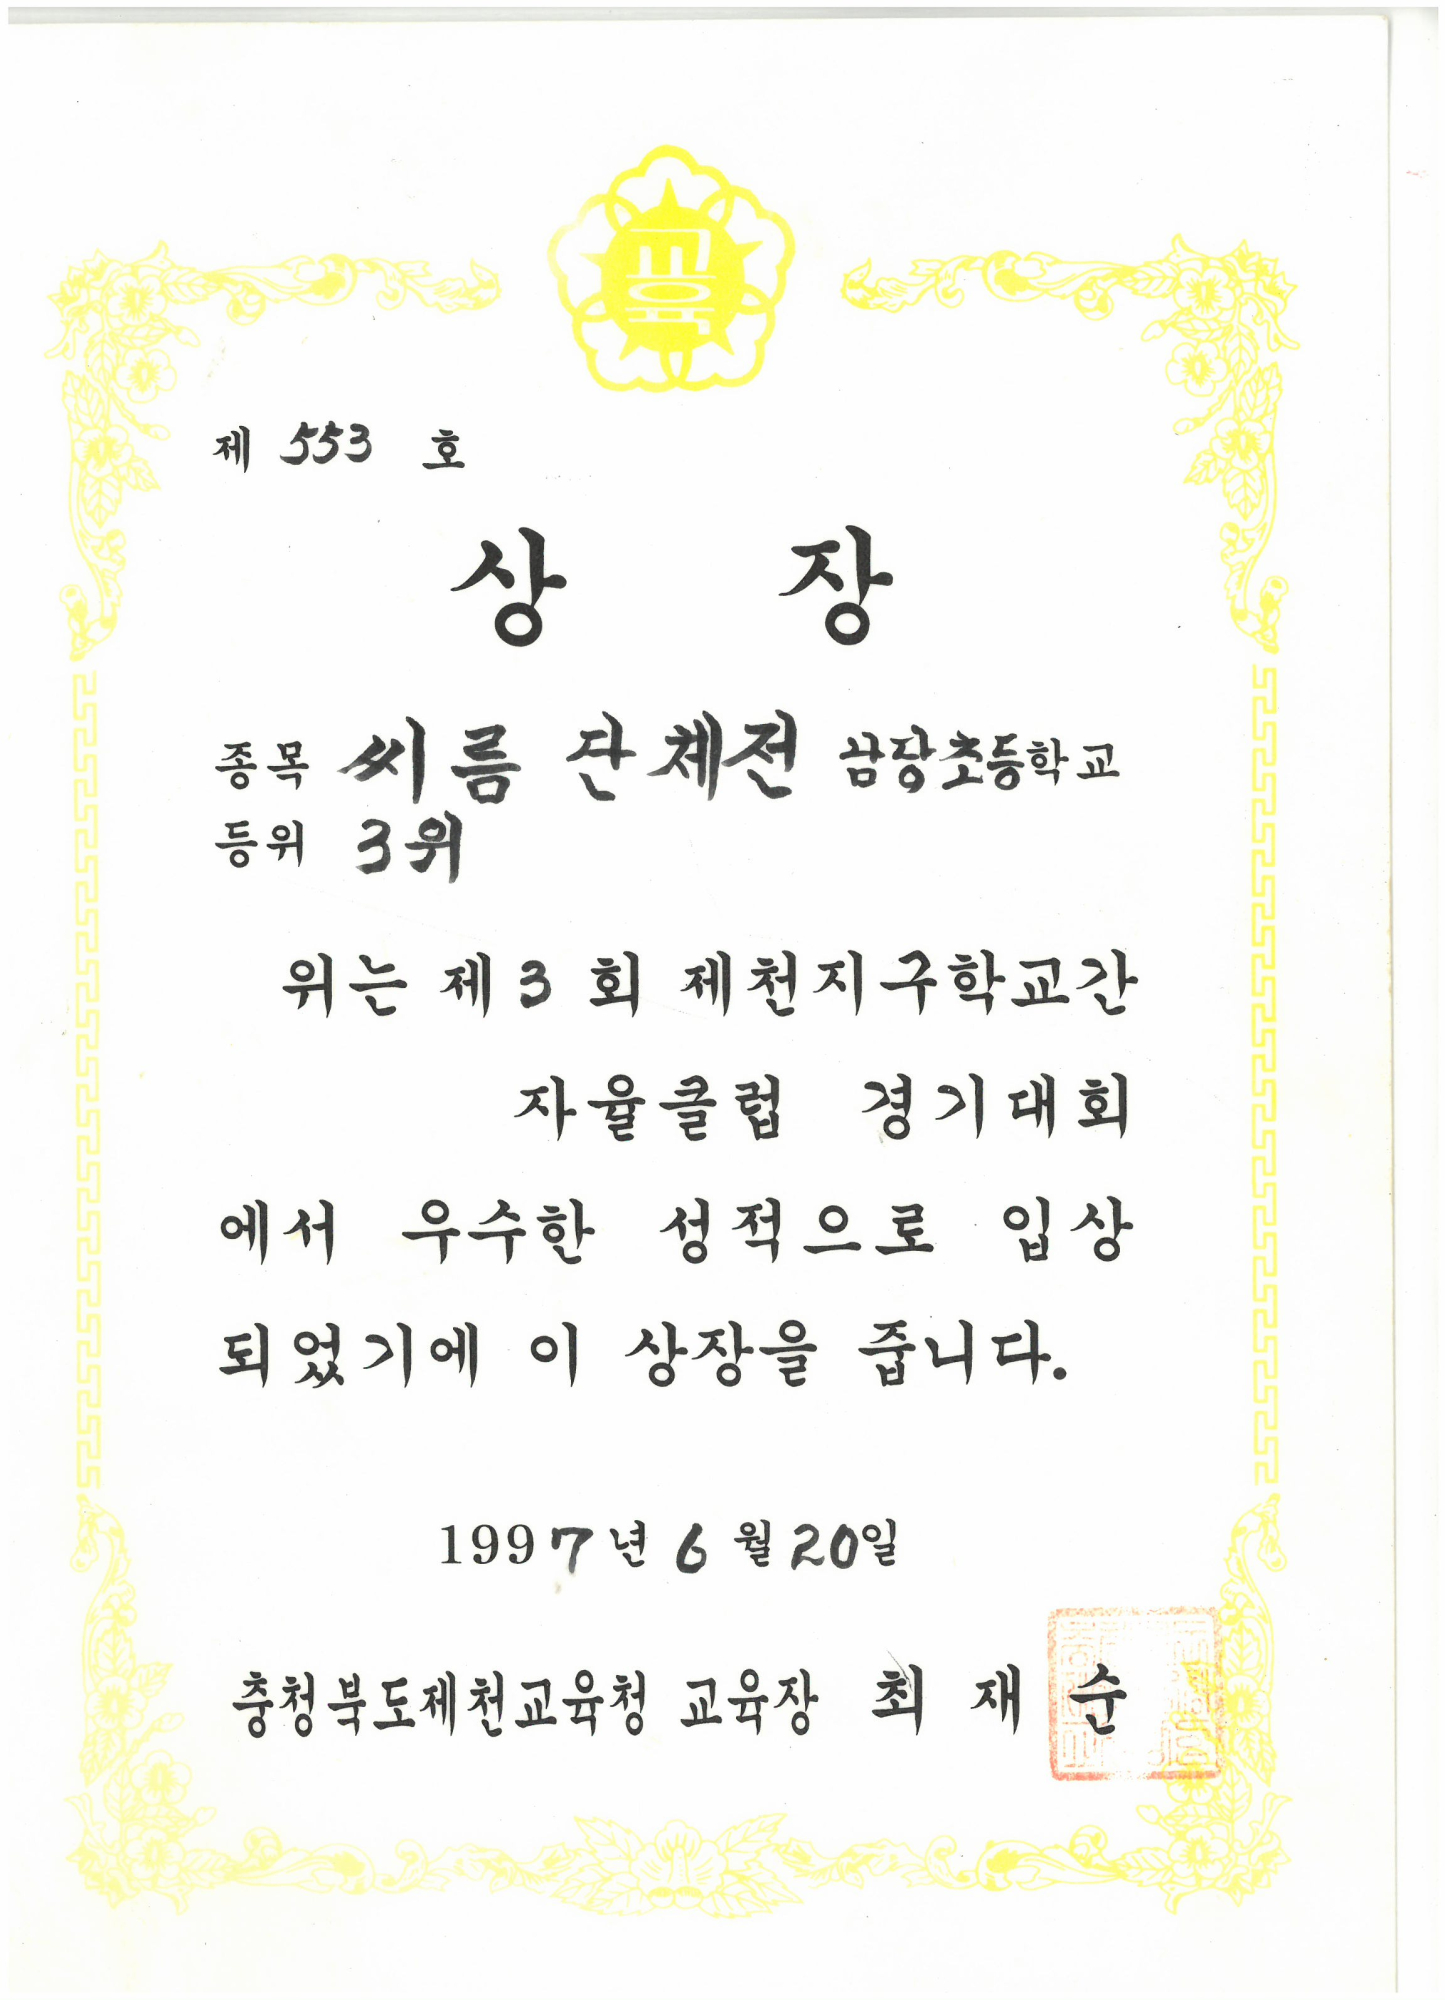 교육
제 553 호
상 장
종목 씨름 단체전 남당초등학교
등위 3위
위는 제 3 회 제천지구학교간
자율클럽 경기대회
에서 우수한 성적으로 입상
되었기에 이 상장을 줍니다.
1997년 6월 20일
충청북도제천교육청 교육장 최재순